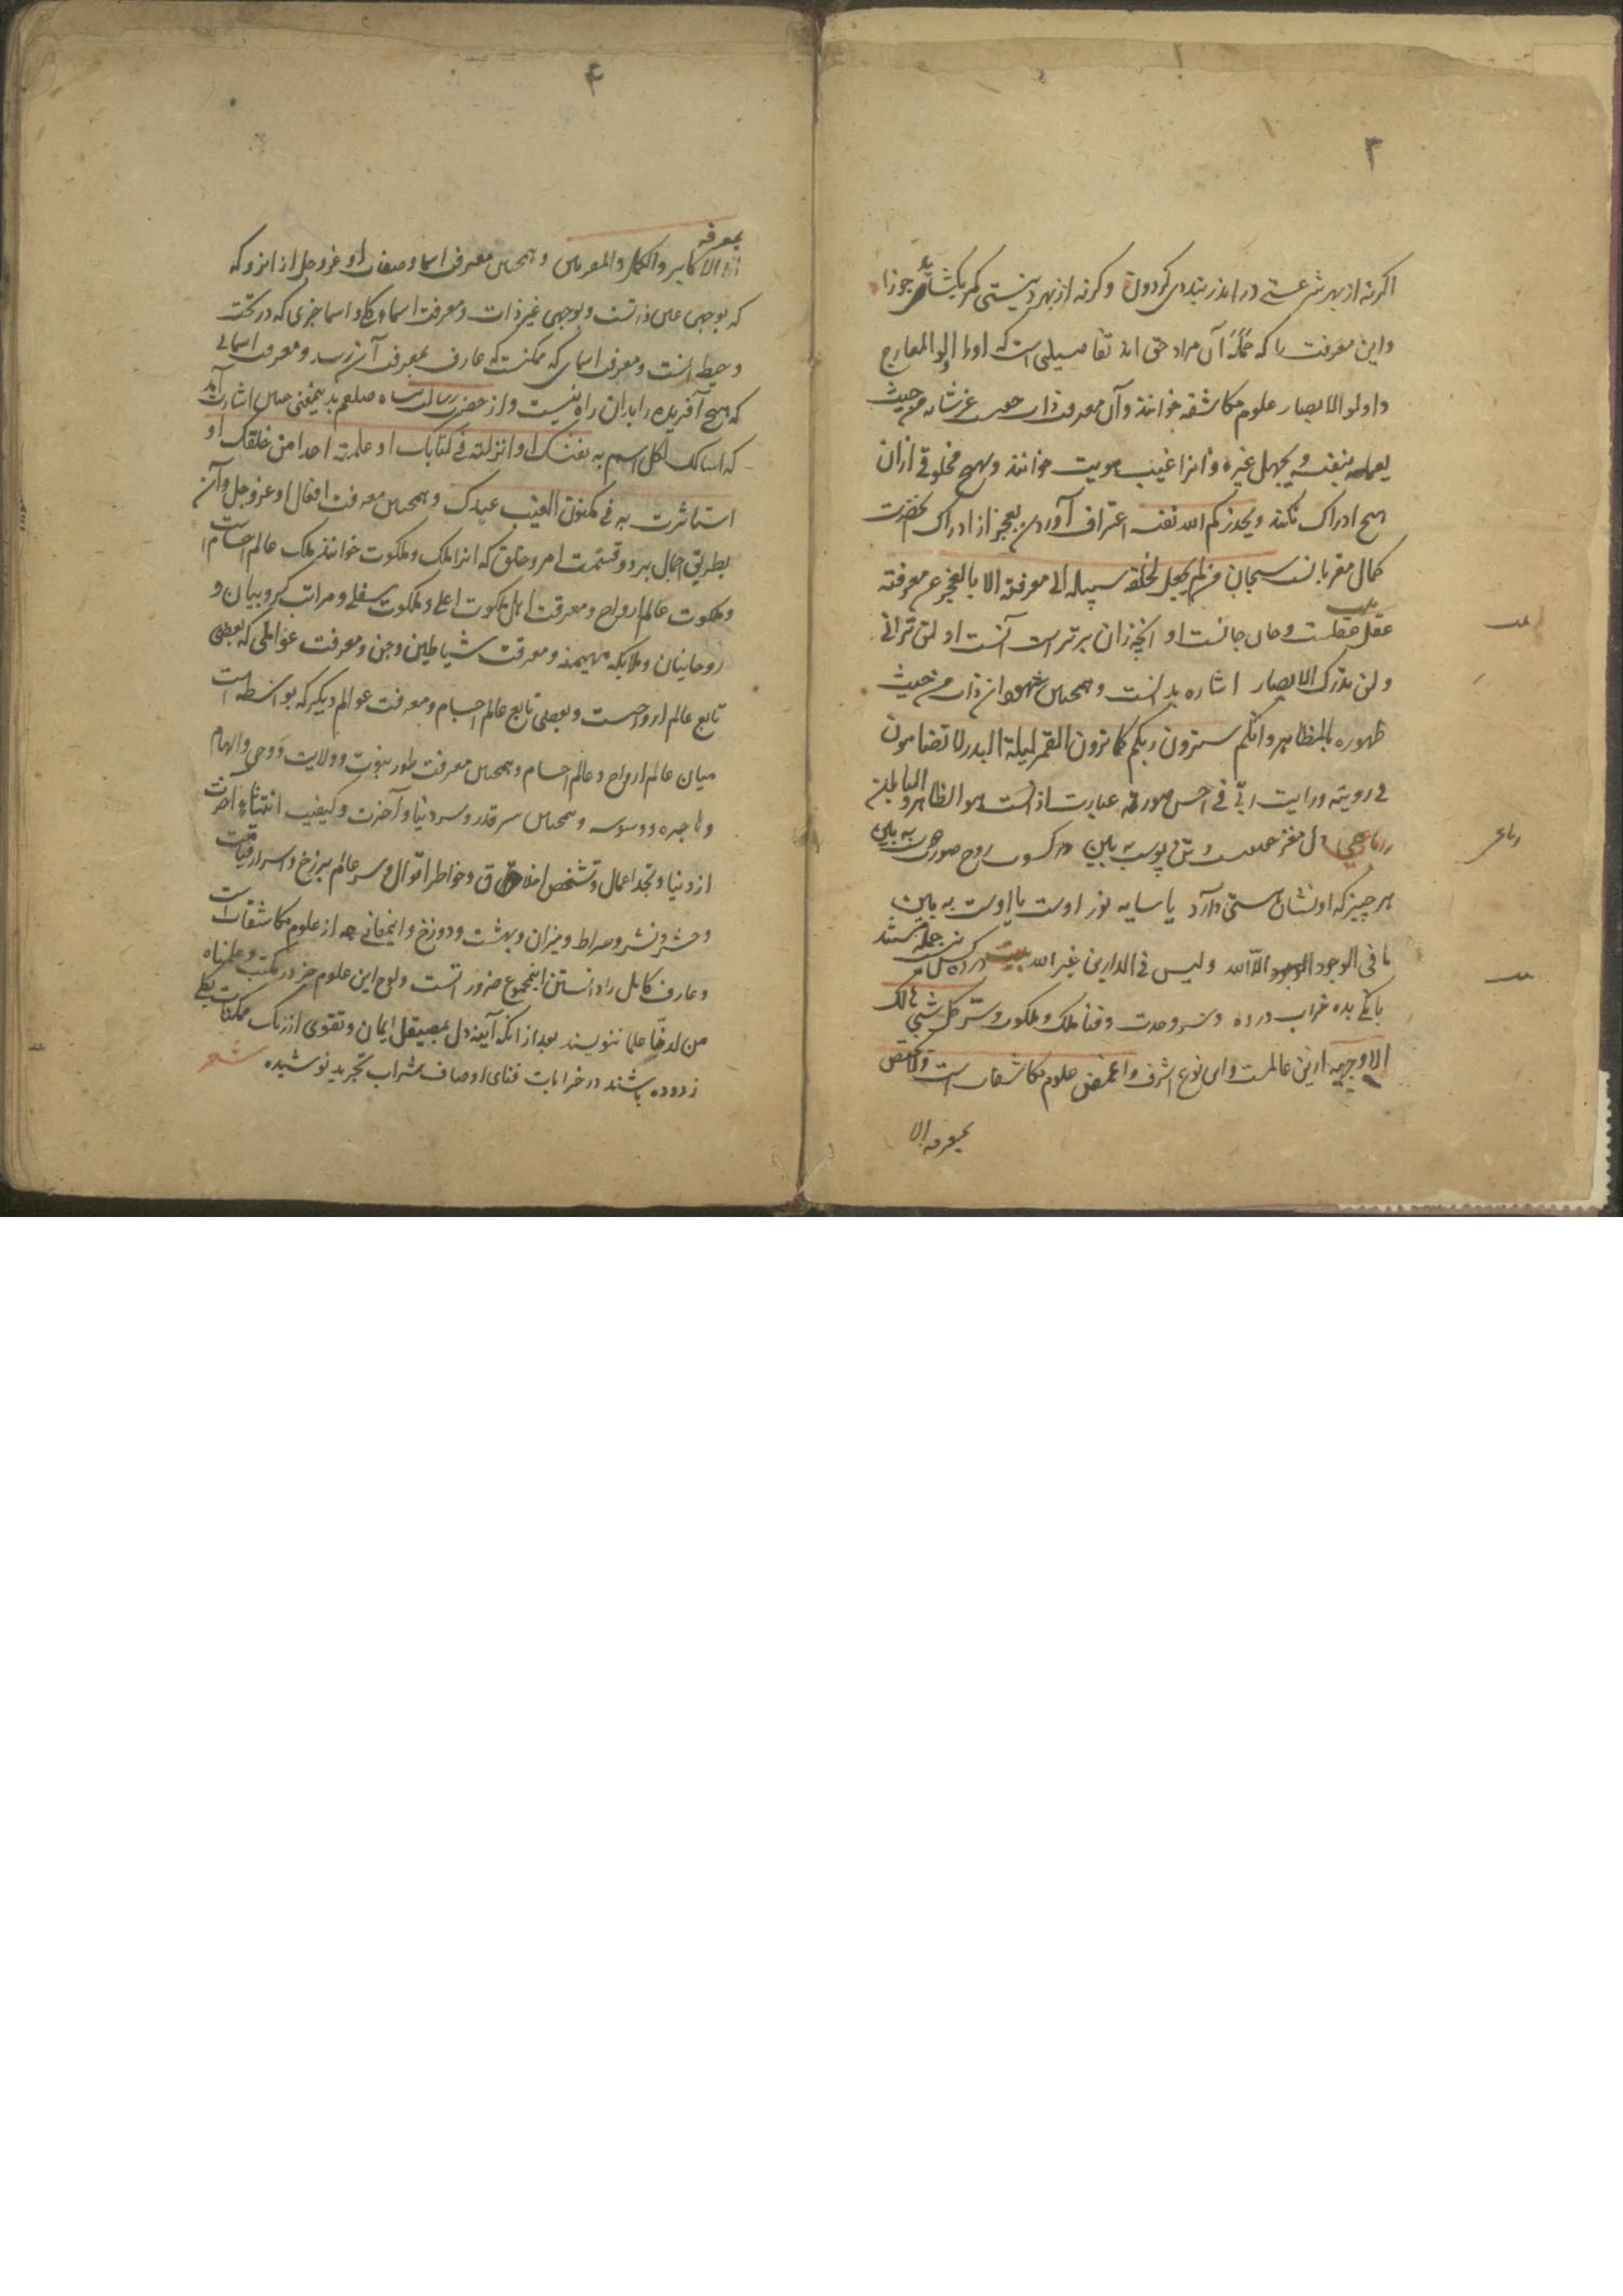 ۳
اگرنه از بهر شرعستی در اندر بنددی گردون وگرنه از بهر دینستی کمر بگشایدی جوزا
و این معرفت را که جمله آن مراد حق اند تفاصیلی است که اورا اولو المعارج
و اولو الابصار علوم مکاشفه خوانند و آن معرفت ذات حق است عز شانه من حیث
یعلمه بنفسه و یجهل غیره و انرا غیب هویت خوانند و هیچ مخلوقی ازان
هیچ ادراک نکند و یحذرکم الله نفسه اعتراف آوردن بعجز از ادراک بحضرت
کمال مقربانست سبحان من لم یجعل لخلقه سبیلا الی معرفته الا بالعجز عن معرفته
بیت
عقل عقلست و جان جانست او آنچه زان برترست آنست او لن ترانی
و لن تدرک الابصار اشاره بدانست و همچنین شهود ان ذات من حیث
ظهوره بالمظاهر و انکم سترون ربکم کما ترون القمر لیلة البدر لا تضامون
فی رویته و رایت ربی فی احسن صورة عبارت ازانست هو الظاهر و الباطن
رباعی دل مغز حقیقت است و تن پوست ببین در کسوت روح صورت دوست ببین
هر چیز که او نشان هستی دارد یا سایه نور اوست یا اوست ببین
ما فی الوجود الا الله و لیس فی الدارین غیر الله بیت
بانکی بده خراب در ده و سر وحدت و فنا ملک و ملکوت و سر کل شیئی هالک
الا وجهه ازین عالمست و این نوع اشرف و اغمض علوم مکاشفات است و لا یختص
بمعرفه الا
رباعی
۴
بمعرفه
الا الاکابر و الکمل و المقربین و همچنین معرفت اسما و صفات او عز و جل از انرو که
که بوجهی عین ذاتست و بوجهی غیر ذات و معرفت اسماء کلی و اسما جزی که در تحت
و حیطه انست و معرفت اسمای که ممکنست که عارف بمعرفت آن رسد و معرفت اسمائی
که هیچ آفریده را بدان راه نیست و از حضرت رسالت پناه صلعم بدینمعنی چنین اشارت آمد
که اسالک بکل اسم به نفسک او انزلته فی کتابک او علمته احدا من خلقک او
استاثرت به فی مکنون الغیب عندک و همچنین معرفت افعال او عز و جل و آن
بطریق اجمال بر دو قسمت امر و خلق که انرا ملک و ملکوت خوانند ملک عالم اجسام است
و ملکوت عالم ارواح و معرفت اهل ملکوت اعلی و ملکوت سفلی و مراتب کروبیان و
روحانیان و ملایکه مهیمنه و معرفت شیاطین و جن و معرفت عواملی که بعضی
تابع عالم ارواحست و بعضی تابع عالم اجسام و معرفت عوالم دیگر که بواسطه است
میان عالم ارواح و عالم اجسام و همچنین معرفت طور نبوت و ولایت و وحی و الهام
و هاجره و وسوسه و همچنین سر قدر و سر دنیا و آخرت و کیفیت انتشاء آخرت
از دنیا و تجسد اعمال و تشخص اخلاق و خواطر اقوال و سر عالم برزخ و اسرار قیامت
و حشر و نشر و صراط و میزان و بهشت و دوزخ و اینمعانی همه از علوم مکاشفات است
و عارف کامل را دانستن اینمجموع ضرور است و لوح این علوم جز در مکتب و علمناه
من لدنا علما ننویسند بعد از انکه آیینه دل بمصیقل ایمان و تقوی از زنک ممکنات بکلی
زدوده باشند در خرابات فنای اوصاف شراب تجرید نوشیده شعر